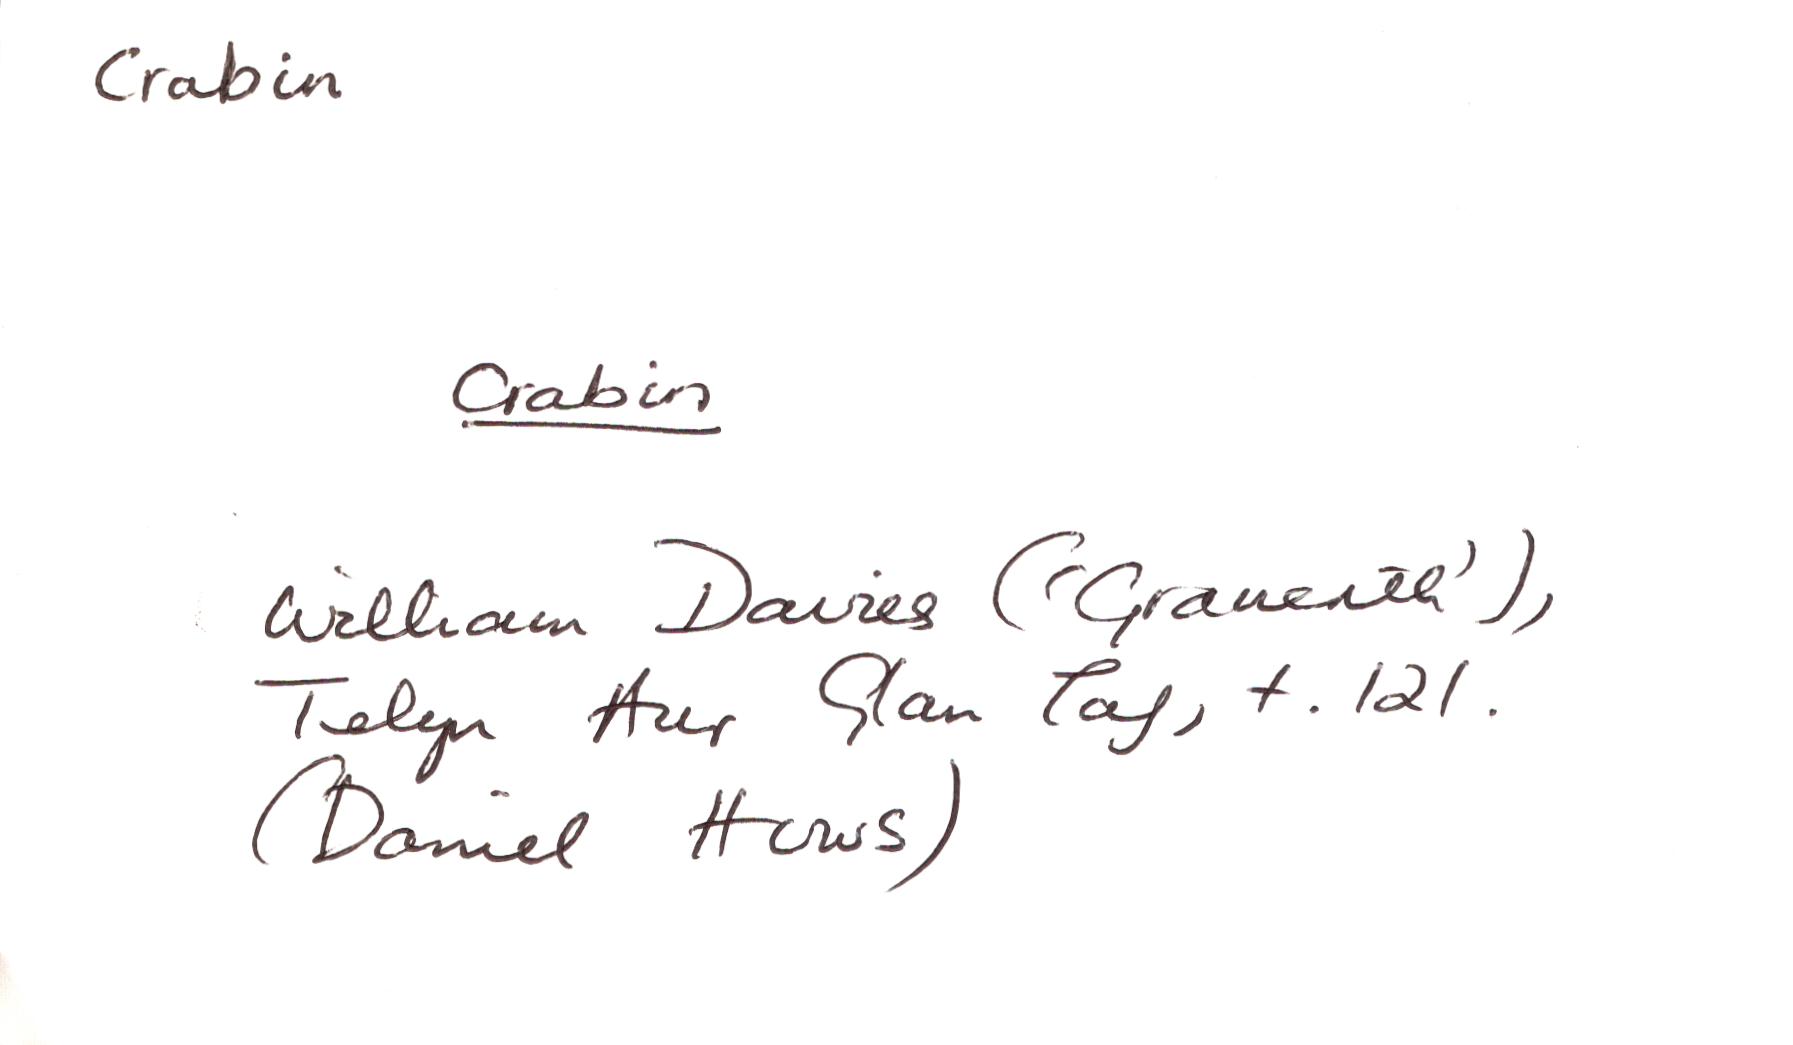 Crabin
Crabin
William Davies ('Grawerth'),
Telyn Aur Glan Taf, t. 121.
(Daniel Huws)